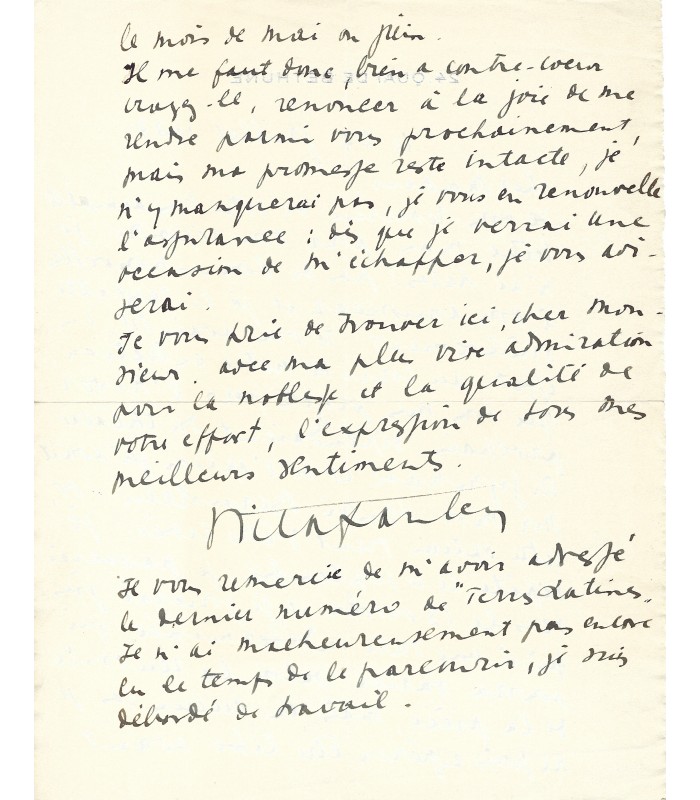 le mois de mai ou juin.
Il me faut donc, bien à contre-coeur
croyez-le, renoncer à la joie de me
rendre parmi vous prochainement,
mais ma promesse reste intacte, je
n'y manquerai pas, je vous en renouvelle
l'assurance : dès que je verrai une
occasion de m'échapper, je vous avi-
serai.
Je vous prie de trouver ici, cher Mon-
sieur, avec ma plus vive admiration
pour la noblesse et la qualité de
votre effort, l'expression de tous mes
meilleurs sentiments.
Je vous remercie de m'avoir adressé
le dernier numéro de "Terres Latines".
Je n'ai malheureusement pas encore
eu le temps de le parcourir, je suis
débordé de travail.
24 QUAI DE BETHUNE